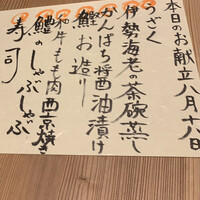 本日のお献立八月十八日
うざく
伊勢海老の茶碗蒸し
かんぱち醤油漬け
鰹お造り
和牛もも肉西京焼き
鱧のしゃぶしゃぶ
寿司